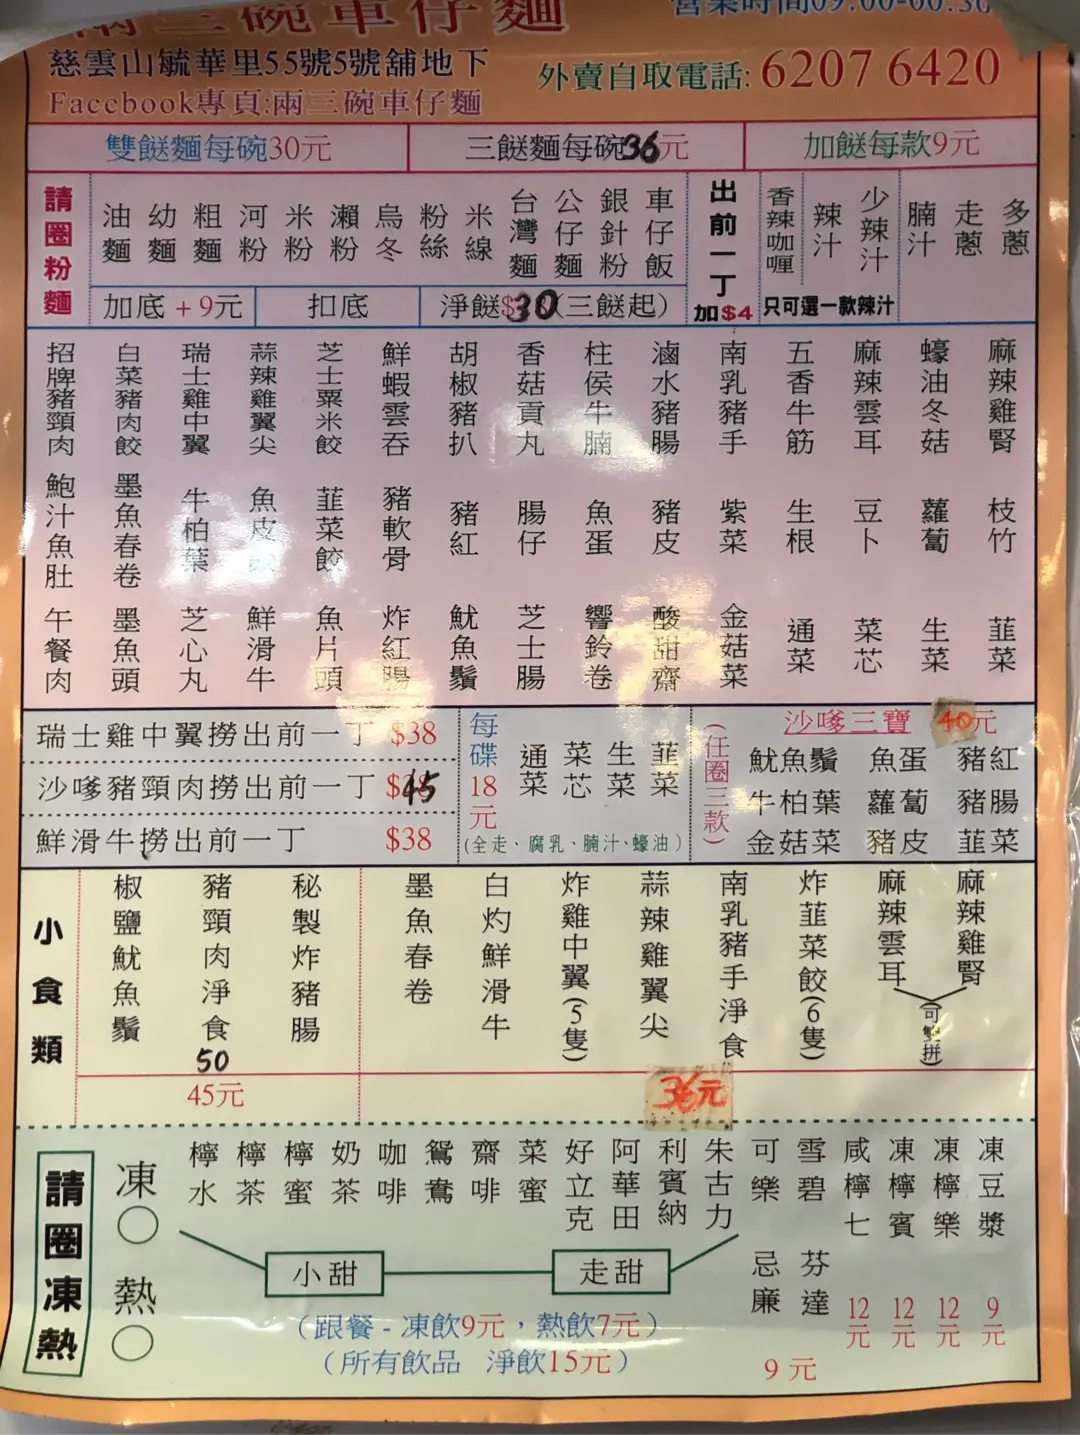 兩三碗車仔麵
營業時間09:00-00:30
慈雲山毓華里55號5號舖地下
Faccbook專頁:兩三碗車仔麵
外賣自取電話: 6207 6420
雙餸麵每碗30元
三餸麵每碗36元
加餸每款9元
請圈粉麵
油麵 幼麵 粗麵 河粉 米粉 瀨粉 烏冬 粉絲 米線 台灣麵 公仔麵 銀針粉 車仔飯
出前一丁
加$4
香辣咖喱 辣汁 少辣汁
只可選一款辣汁
腩汁 走蔥 多蔥
加底 +9元
扣底
淨餸$30(三餸起)
招牌豬頸肉 白菜豬肉餃 瑞士雞中翼 蒜辣雞翼尖 芝士粟米餃 鮮蝦雲吞 胡椒豬扒 香菇貢丸 柱侯牛腩 滷水豬腸 南乳豬手 五香牛筋 麻辣雲耳 蠔油冬菇 麻辣雞腎
鮑汁魚肚 墨魚春卷 牛柏葉 魚皮 韮菜餃 豬軟骨 豬紅 腸仔 魚蛋 豬皮 紫菜 生根 豆卜 蘿蔔 枝竹
午餐肉 墨魚頭 芝心丸 鮮滑牛 魚片頭 炸紅腸 魷魚鬚 芝士腸 響鈴卷 酸甜齋 金菇菜 通菜 菜芯 生菜 韮菜
瑞士雞中翼撈出前一丁 $38
沙嗲豬頸肉撈出前一丁 $45
鮮滑牛撈出前一丁 $38
每碟18元
通菜 菜芯 生菜 韮菜
(全走、腐乳、腩汁、蠔油)
沙嗲三寶 40元
(任圈三款)
魷魚鬚 魚蛋 豬紅
牛柏葉 蘿蔔 豬腸
金菇菜 豬皮 韮菜
小食類
椒鹽魷魚鬚 豬頸肉淨食 秘製炸豬腸
50
45元
墨魚春卷 白灼鮮滑牛 炸雞中翼(5隻) 蒜辣雞翼尖 南乳豬手淨食 炸韮菜餃(6隻) 麻辣雲耳 麻辣雞腎
(可雙拼)
36元
請圈凍熱
凍○
熱○
檸水 檸茶 檸蜜 奶茶 咖啡 鴛鴦 齋啡 菜蜜 好立克 阿華田 利賓納 朱古力
小甜
走甜
(跟餐 - 凍飲9元，熱飲7元)
(所有飲品 淨飲15元)
可樂 雪碧
忌廉 芬達
9元
咸檸七 12元
凍檸賓 12元
凍檸樂 12元
凍豆漿 9元